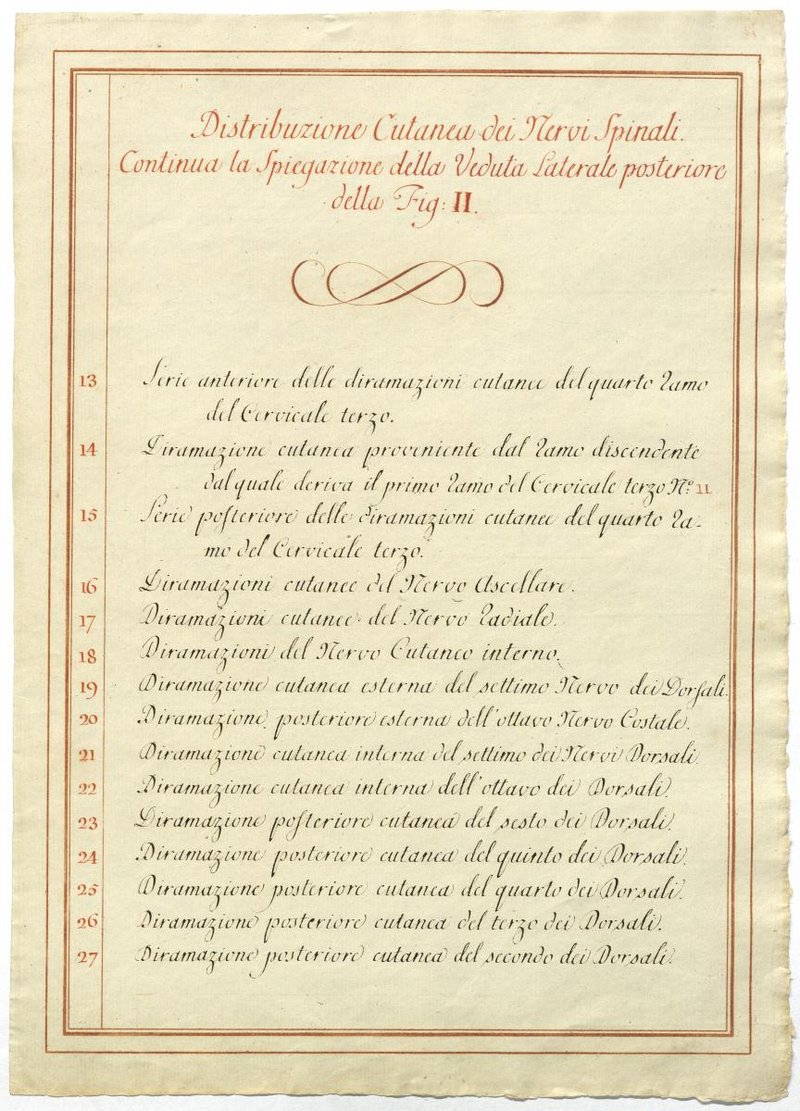 Distribuzione Cutanea dei Nervi Spinali.
Continua la Spiegazione della Veduta Laterale posteriore
della Fig: II.
13 Serie anteriore delle diramazioni cutanee del quarto Ramo
del Cervicale terzo.
14 Diramazione cutanea proveniente dal Ramo discendente
dal quale deriva il primo Ramo del Cervicale terzo N.º 11
15 Serie posteriore delle diramazioni cutanee del quarto Ra-
mo del Cervicale terzo.
16 Diramazioni cutanee del Nervo Ascellare.
17 Diramazioni cutanee del Nervo Radiale.
18 Diramazioni del Nervo Cutaneo interno.
19 Diramazione cutanea esterna del settimo Nervo dei Dorsali.
20 Diramazione posteriore esterna dell'ottavo Nervo Costale.
21 Diramazione cutanea interna del settimo dei Nervi Dorsali.
22 Diramazione cutanea interna dell'ottavo dei Dorsali.
23 Diramazione posteriore cutanea del sesto dei Dorsali.
24 Diramazione posteriore cutanea del quinto dei Dorsali.
25 Diramazione posteriore cutanea del quarto dei Dorsali.
26 Diramazione posteriore cutanea del terzo dei Dorsali.
27 Diramazione posteriore cutanea del secondo dei Dorsali.